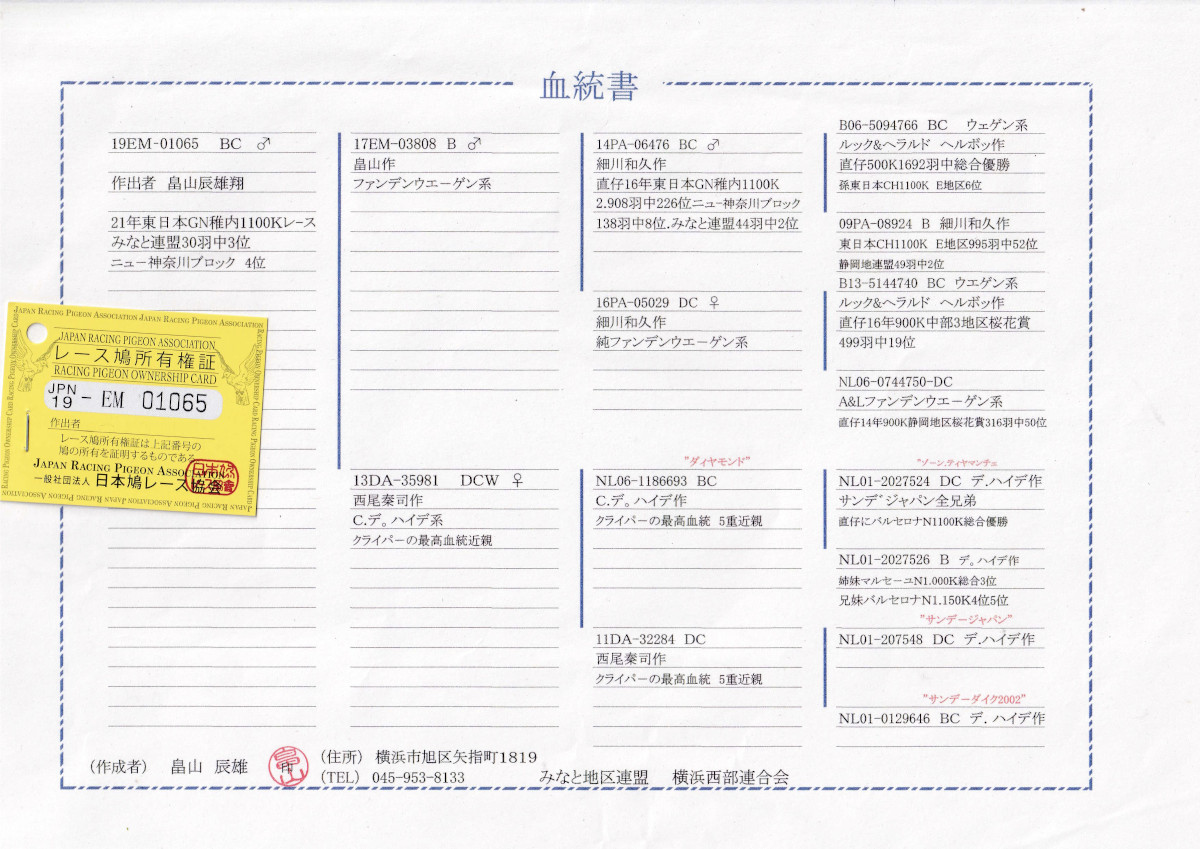 血統書
19EM-01065 BC ♂
作出者 畠山辰雄翔
21年東日本GN稚内1100Kレース
みなと連盟30羽中3位
ニュー神奈川ブロック 4位
JAPAN RACING PIGEON ASSOCIATION JAPAN RACING PIGEON ASSOCIATION
JAPAN RACING PIGEON ASSOCIATION
レース鳩所有権証
RACING PIGEON OWNERSHIP CARD
JPN
19 - EM 01065
作出者
レース鳩所有権証は上記番号の
鳩の所有を証明するものである
JAPAN RACING PIGEON ASSOCIATION
一般社団法人 日本鳩レース協会
17EM-03808 B ♂
畠山作
ファンデンウエーゲン系
13DA-35981 DCW ♀
西尾秦司作
C.デ。ハイデ系
クライパーの最高血統近親
14PA-06476 BC ♂
細川和久作
直仔16年東日本GN稚内1100K
2.908羽中226位ニュー神奈川ブロック
138羽中8位.みなと連盟44羽中2位
16PA-05029 DC ♀
細川和久作
純ファンデンウエーゲン系
"ダイヤモンド"
NL06-1186693 BC
C.デ。ハイデ作
クライパーの最高血統 5重近親
11DA-32284 DC
西尾秦司作
クライパーの最高血統 5重近親
B06-5094766 BC ウェゲン系
ルック&ヘラルド ヘルボッ作
直仔500K1692羽中総合優勝
孫東日本CH1100K E地区6位
09PA-08924 B 細川和久作
東日本CH1100K E地区995羽中52位
静岡地連盟49羽中2位
B13-5144740 BC ウエゲン系
ルック&ヘラルド ヘルボッ作
直仔16年900K中部3地区桜花賞
499羽中19位
NL06-0744750-DC
A&Lファンデンウエーゲン系
直仔14年900K静岡地区桜花賞316羽中50位
"ゾーン.ディヤマンチェ
NL01-2027524 DC デ.ハイデ作
サンデ゛ジャパン全兄弟
直仔にバルセロナN1100K総合優勝
NL01-2027526 B デ。ハイデ作
姉妹マルセーユN1.000K総合3位
兄妹バルセロナN1.150K4位5位
"サンデージャパン"
NL01-207548 DC デ.ハイデ作
"サンデーダイク2002"
NL01-0129646 BC デ. ハイデ作
(作成者) 畠山 辰雄
(住所) 横浜市旭区矢指町1819
(TEL) 045-953-8133 みなと地区連盟 横浜西部連合会